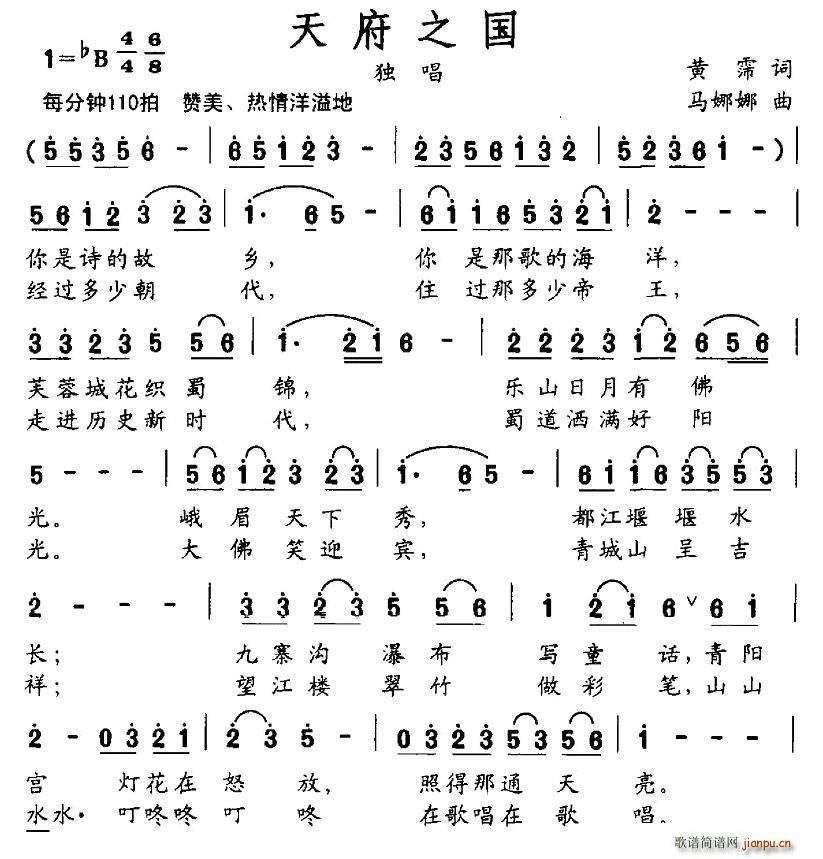 天府之国
1=♭B 4/4 6/8
独唱
黄霈 词
每分钟110拍 赞美、热情洋溢地
马娜娜 曲
(5 5 3 5 6 - | 6 5 1 2 3 - | 2 3 5 6 1 3 2 | 5 2 3 6 1 - ) |
5 6 1 2 3 2 3 | 1· 6 5 - | 6 1 1 6 5 3 2 1 | 2 - - - |
你是诗的故 乡, 你 是那歌的海 洋,
经过多少朝 代, 住 过那多少帝 王,
3 3 2 3 5 5 6 | 1· 2 1 6 - | 2 2 2 3 1 2 6 5 6 |
芙蓉城花织 蜀 锦, 乐山日月有 佛
走进历史新 时 代, 蜀道洒满好 阳
5 - - - | 5 6 1 2 3 2 3 | 1· 6 5 - | 6 1 1 6 3 5 5 3 |
光。 峨眉 天下 秀, 都江堰 堰 水
光。 大佛 笑迎 宾, 青城山 呈 吉
2 - - - | 3 3 2 3 5 5 6 | 1 2 1 6 ∨ 6 1 |
长; 九寨沟 瀑布 写童 话,青阳
祥; 望江楼 翠竹 做彩 笔,山山
2 - 0 3 2 1 | 2 3 5 - | 0 3 2 3 5 3 5 6 | 1 - - - |
宫 灯花在 怒 放, 照得那通 天 亮。
水水· 叮咚咚 叮 咚 在歌唱在 歌 唱。
歌谱简谱网 jianpu.cn